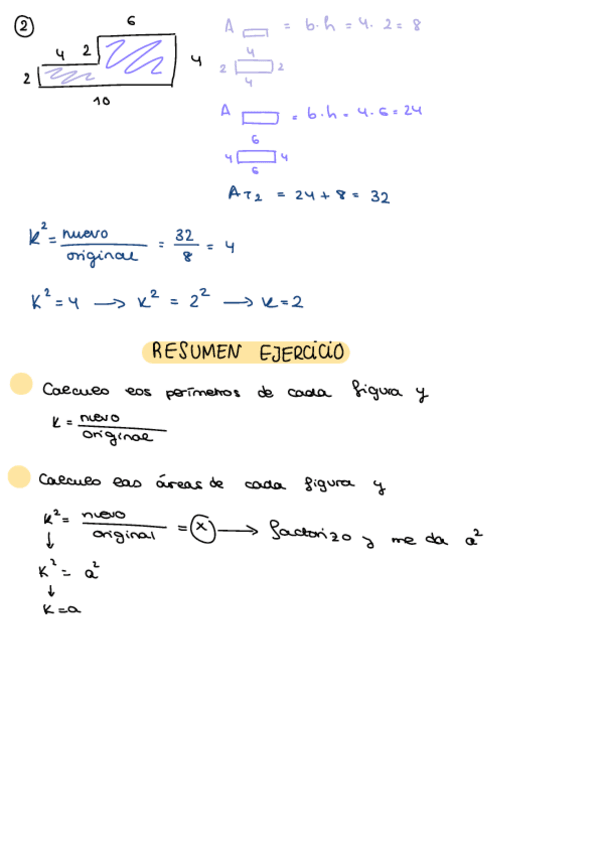 ②
6
4 2
4
2
10
A = b·h = 4·2 = 8
4
2 2
4
A = b·h = 4·6 = 24
6
4 4
6
A_T2 = 24 + 8 = 32
K² = nuevo / original = 32 / 8 = 4
K² = 4 → K² = 2² → K = 2
RESUMEN EJERCICIO
Calculo los perímetros de cada figura y
K = nuevo / original
Calculo las áreas de cada figura y
K² = nuevo / original = ⓧ → factorizo y me da a²
↓
K² = a²
↓
K = a